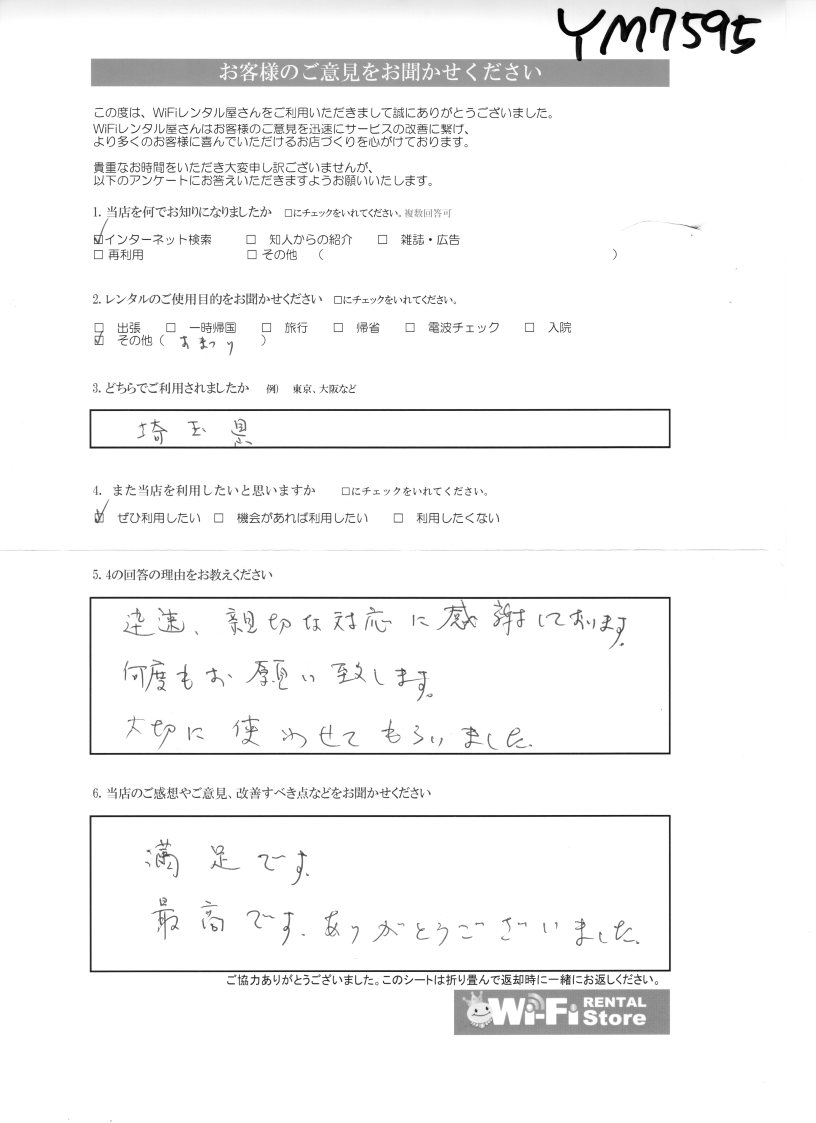 YM7595
お客様のご意見をお聞かせください
この度は、WiFiレンタル屋さんをご利用いただきまして誠にありがとうございました。
WiFiレンタル屋さんはお客様のご意見を迅速にサービスの改善に繋げ、
より多くのお客様に喜んでいただけるお店づくりを心がけております。
貴重なお時間をいただき大変申し訳ございませんが、
以下のアンケートにお答えいただきますようお願いいたします。
1. 当店を何でお知りになりましたか □にチェックをいれてください。複数回答可
☑インターネット検索 □ 知人からの紹介 □ 雑誌・広告
□ 再利用 □ その他 ( )
2. レンタルのご使用目的をお聞かせください □にチェックをいれてください。
□ 出張 □ 一時帰国 □ 旅行 □ 帰省 □ 電波チェック □ 入院
☑ その他 ( おまつり )
3. どちらでご利用されましたか 例) 東京、大阪など
埼玉県
4. また当店を利用したいと思いますか □にチェックをいれてください。
☑ ぜひ利用したい □ 機会があれば利用したい □ 利用したくない
5. 4の回答の理由をお教えください
迅速、親切な対応に感謝しております。
何度もお願い致します。
大切に使わせてもらいました。
6. 当店のご感想やご意見、改善すべき点などをお聞かせください
満足です。
最高です。ありがとうございました。
ご協力ありがとうございました。このシートは折り畳んで返却時に一緒にお返しください。
Wi-Fi RENTAL Store